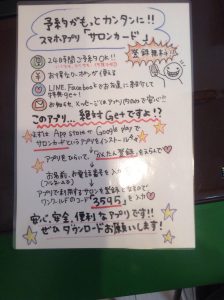 予約がもっとカンタンに!!
スマホアプリ「サロンカード」
登録無料!!
24時間ご予約OK!!
お得なクーポンが使える
LINE、Facebookでお友達に
特典get!
お知らせ、メッセージもアプリ内
このアプリ…絶対Getですよ!?
まずは App store か Google play で
サロンカードというアプリをインストール
アプリをひらいて、「かんたん登録」をえらんで
お名前、お電話番号を入力
(フルネーム)
アプリで利用するサロンを登録となるので
サロンコード「3595」を入力
安心、安全、便利なアプリです!!
ぜひダウンロードお願いします!